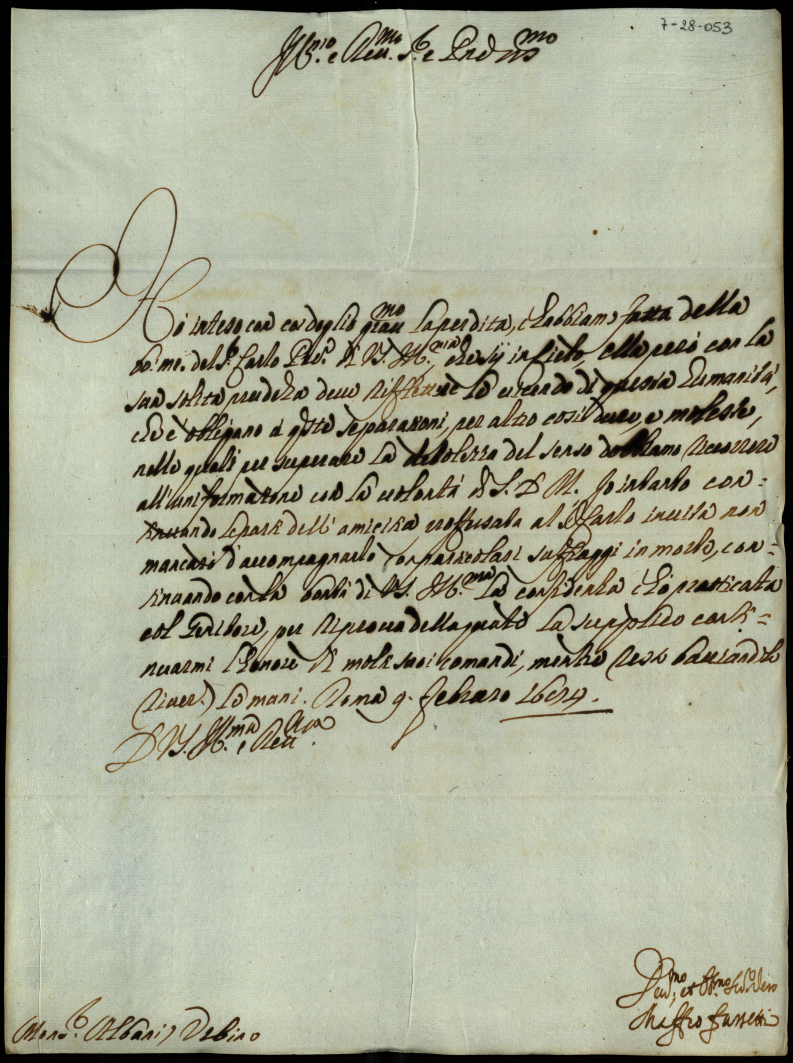 7-28-053
Ill.mo e Rev.mo S.r e Pron mo
Hò inteso con cordoglio gran.mo la perdita, c'habbiamo fatta della
bo: me: del S.r Carlo Pad.e di V.S. Ill.ma che sij in Cielo, ella però con la
sua solita prudenza deve riflettere le vicende di questa humanità,
che c'obbligano à q.ste separazioni, per altro così dure, e moleste,
nelle quali per superare la debolezza del senso dobbiamo ricorrere
all'uniformazione con la volontà di S. D. M. Io intanto con-
servando le parti dell'amicitia professata al S.r Carlo in vita non
mancarò d'accompagnarlo con particolari suffraggi in morte, con-
tinuando con la bontà di V.S. Ill.ma la confidenza c'hò pratticata
col Genitore, per riprova della quale la supplico conti-
nuarmi l'honore di molti suoi comandi, mentre resto baciandole
River.te le mani. Roma 9. febraro 1684.
Di V.S. Ill.ma e Rev.ma
Dev.mo, et Obl.mo Ser.re vero
Maffeo Farsetti
Mons.r Albani Urbino